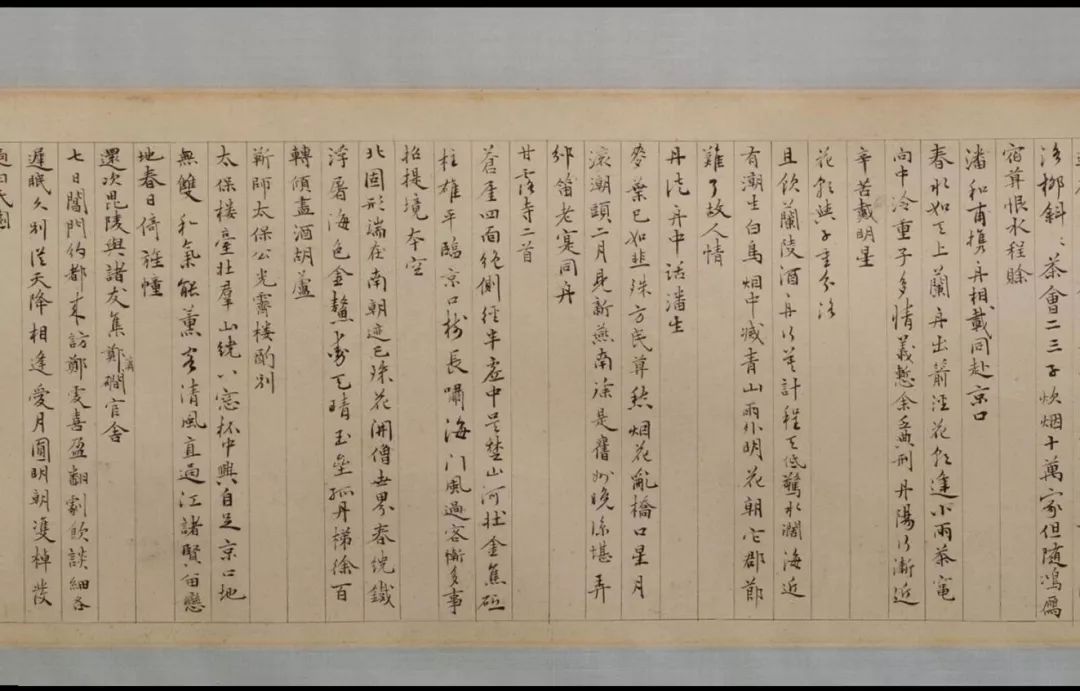 洛柳斜〻茶會二三子炊烟十萬家但隨鴻雁
宿莫恨水程賒
潘和甫携舟相載同赴京口
春水如天上蘭舟出前涇花飛逢小雨茶竈
向中泠重子多情義慙余立典刑丹陽行漸近
辛苦戴明星
花飛與子重分次
且飲蘭陵酒舟行莫計程天低驚水濶海近
有潮生白鳥烟中滅青山雨外明花朝它郡節
難了故人情
丹徒舟中話潘生
麥葉已如韭殊方民莫愁烟花亂橋口星月
滚潮頭二月見新燕南徐是舊州晚涼堪弄
邻笛老寔同舟
甘露寺二首
蒼崖四面絶側徑半虛中吴楚山河壮金焦砥
柱雄平臨京口樹長嘯海门風過客慚多事
招提境本空
北固形端在南朝迹已殊花開僧世界春繞鐵
浮屠海色金鰲動天晴玉壘孤丹梯徐百
轉傾盡酒胡蘆
靳師太保公光霽樓酌别
太保樓臺壮羣山繞八窓杯中興自足京口地
無雙和氣能薰客清風直過江諸賢留戀
地春日倚旌幢
還次毘陵與諸友集鄭磵官舍
七日閶門約都来訪鄭虔喜盈翻劇飲談細各
遲眠久别從天降相逢愛月圓明朝雙棹發